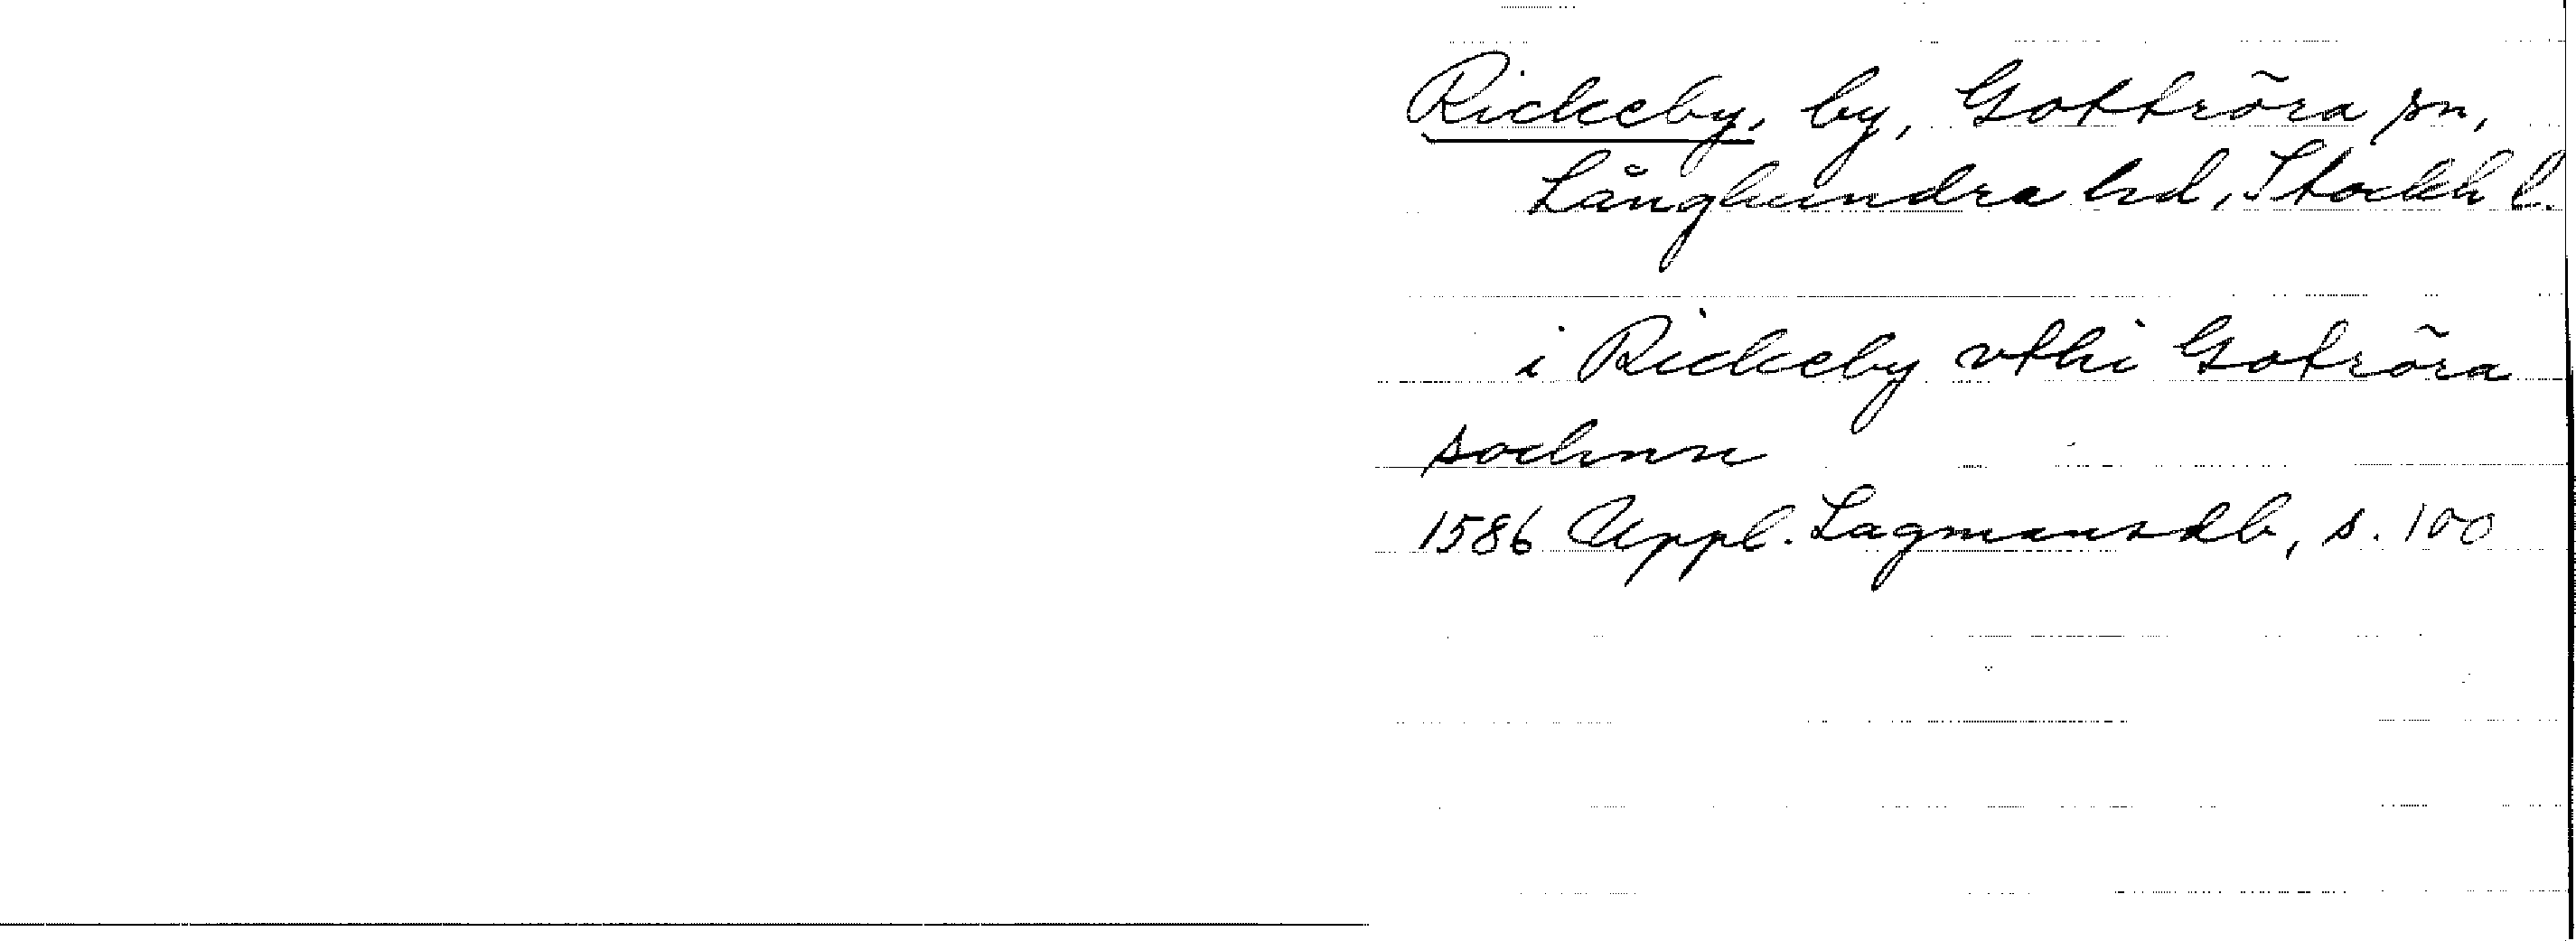 Rickeby, by, Gottröra sn,
Långhundra hd, Stockh l.
i Rickeby vthi Gotröra
sochnn
1586 Uppl. Lagmansdb, s. 100